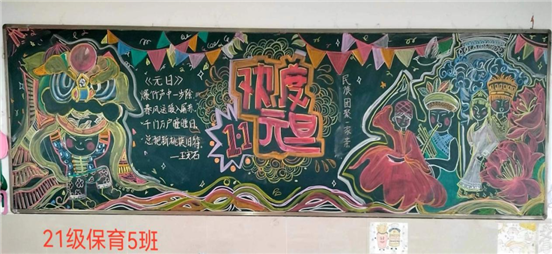 《元日》
爆竹声中一岁除
春风送暖入屠苏
千门万户曈曈日
总把新桃换旧符
—王安石
欢度
元旦
1.1
民族团聚一家亲
21级保育5班